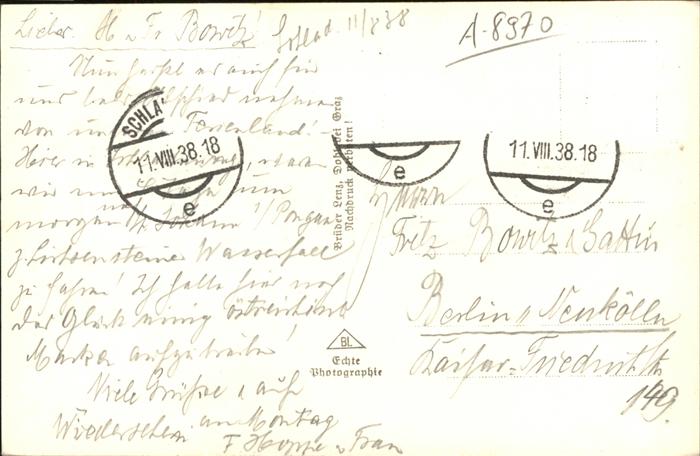 A-8970
11/8 38
Lieber H u Fr Bowitz!
Nun heißt es auch für
uns bald Abschied nehmen
von uns. Ferienland!
Hier in
wir
morgen St. Johann i/Pongau
z. Lichtensteine Wasserfall
zu fahren! Ich hatte hier noch
das Glück einig östreichisch
Marken aufzutreiben!
Viele Grüße u auf
Wiedersehen am Montag
F Hoppe u Frau
SCHLA
11.VIII.38.18
e
e
11.VIII.38.18
e
Brüder Lenz, Dobl bei Graz
Nachdruck verboten!
BL
Echte
Photographie
Herrn
Fritz Bowitz u Gattin
Berlin-Neukölln
Kaiser-Friedrichstr
149.